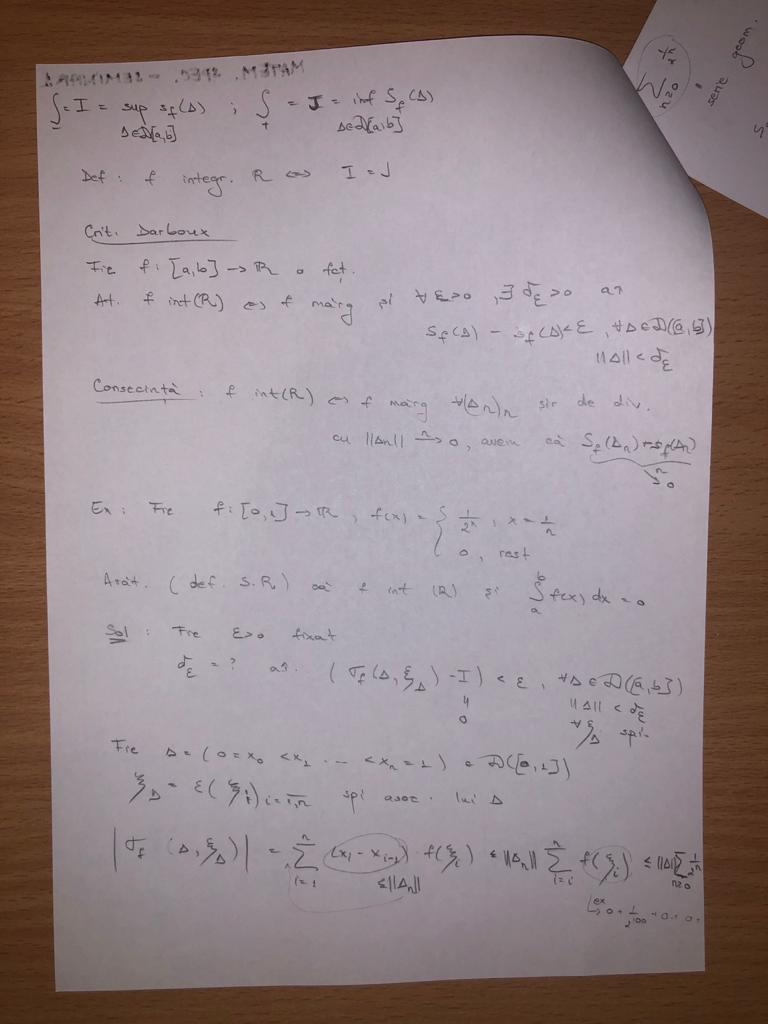 MATEM. SPEC. - SEMINAR 2
∫_ = I = sup s_f(Δ) ; ∫_+ = J = inf S_f(Δ)
Δ∈D[a,b] Δ∈D[a,b]
Def : f integr. R ⇔ I = J
Crit. Darboux
Fie f : [a,b] → R o fct.
At. f int(R) ⇔ f mărg și ∀ ε>0 , ∃ δ_ε >0 aî
S_f(Δ) - s_f(Δ) < ε , ∀Δ∈D([a,b])
||Δ|| < δ_ε
Consecință : f int(R) ⇔ f mărg ∀(Δn)n șir de div.
cu ||Δn|| →ⁿ 0 , avem că S_f(Δn) - s_f(Δn)
→ⁿ 0
Ex : Fie f : [0,1] → R , f(x) = { 1/2ⁿ , x = 1/n
0 , rest
Arăt. ( def. S.R) că f int (R) și ∫_a^b f(x) dx = 0
Sol : Fie ε>0 fixat
δ_ε = ? aî. ( σ_f (Δ, ξ_Δ) - I ) < ε , ∀Δ ∈ D([a,b])
|| 0
||Δ|| < δ_ε
∀ ξ_Δ spi.
Fie Δ = ( 0 = x₀ < x₁ ... < x_n = 1 ) ∈ D([0,1])
ξ_Δ = ε( ξ_i )_{i=1,n} spi asoc. lui Δ
| σ_f (Δ, ξ_Δ) | = Σ_{i=1}^n (x_i - x_{i-1}) · f(ξ_i) ≤ ||Δn|| Σ_{i=i}^n f(ξ_i) ≤ ||Δ|| Σ_{n≥0} 1/2ⁿ
≤ ||Δn||
ex → 0 + 1/2¹⁰⁰ + 0 + 0 +
Σ_{n≥0} 1/2ⁿ
serie geom.